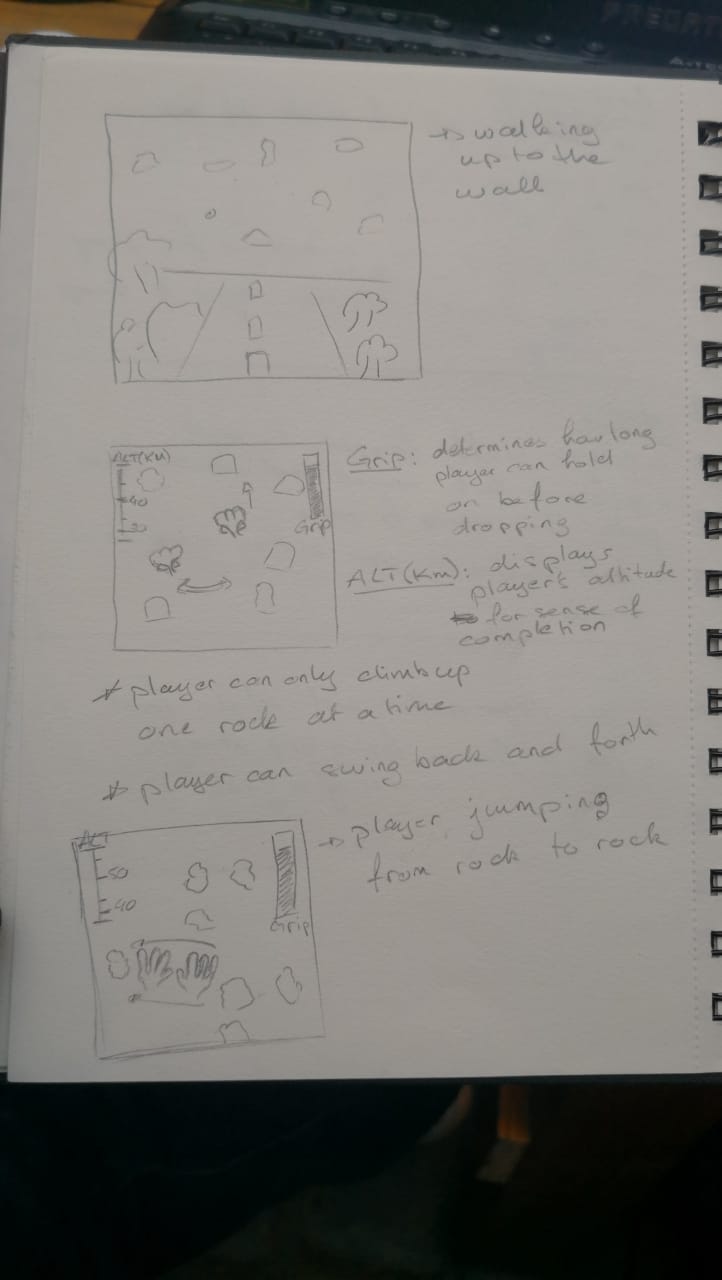 PREDAT
→ walking
up to the
wall
ALT(KM)
40
30
Grip
Grip: determines how long
player can hold
on before
dropping
ALT(Km): displays
player's altitude
for sense of
completion
* player can only climb up
one rock at a time
* player can swing back and forth
ALT
50
40
Grip
→ player jumping
from rock to rock